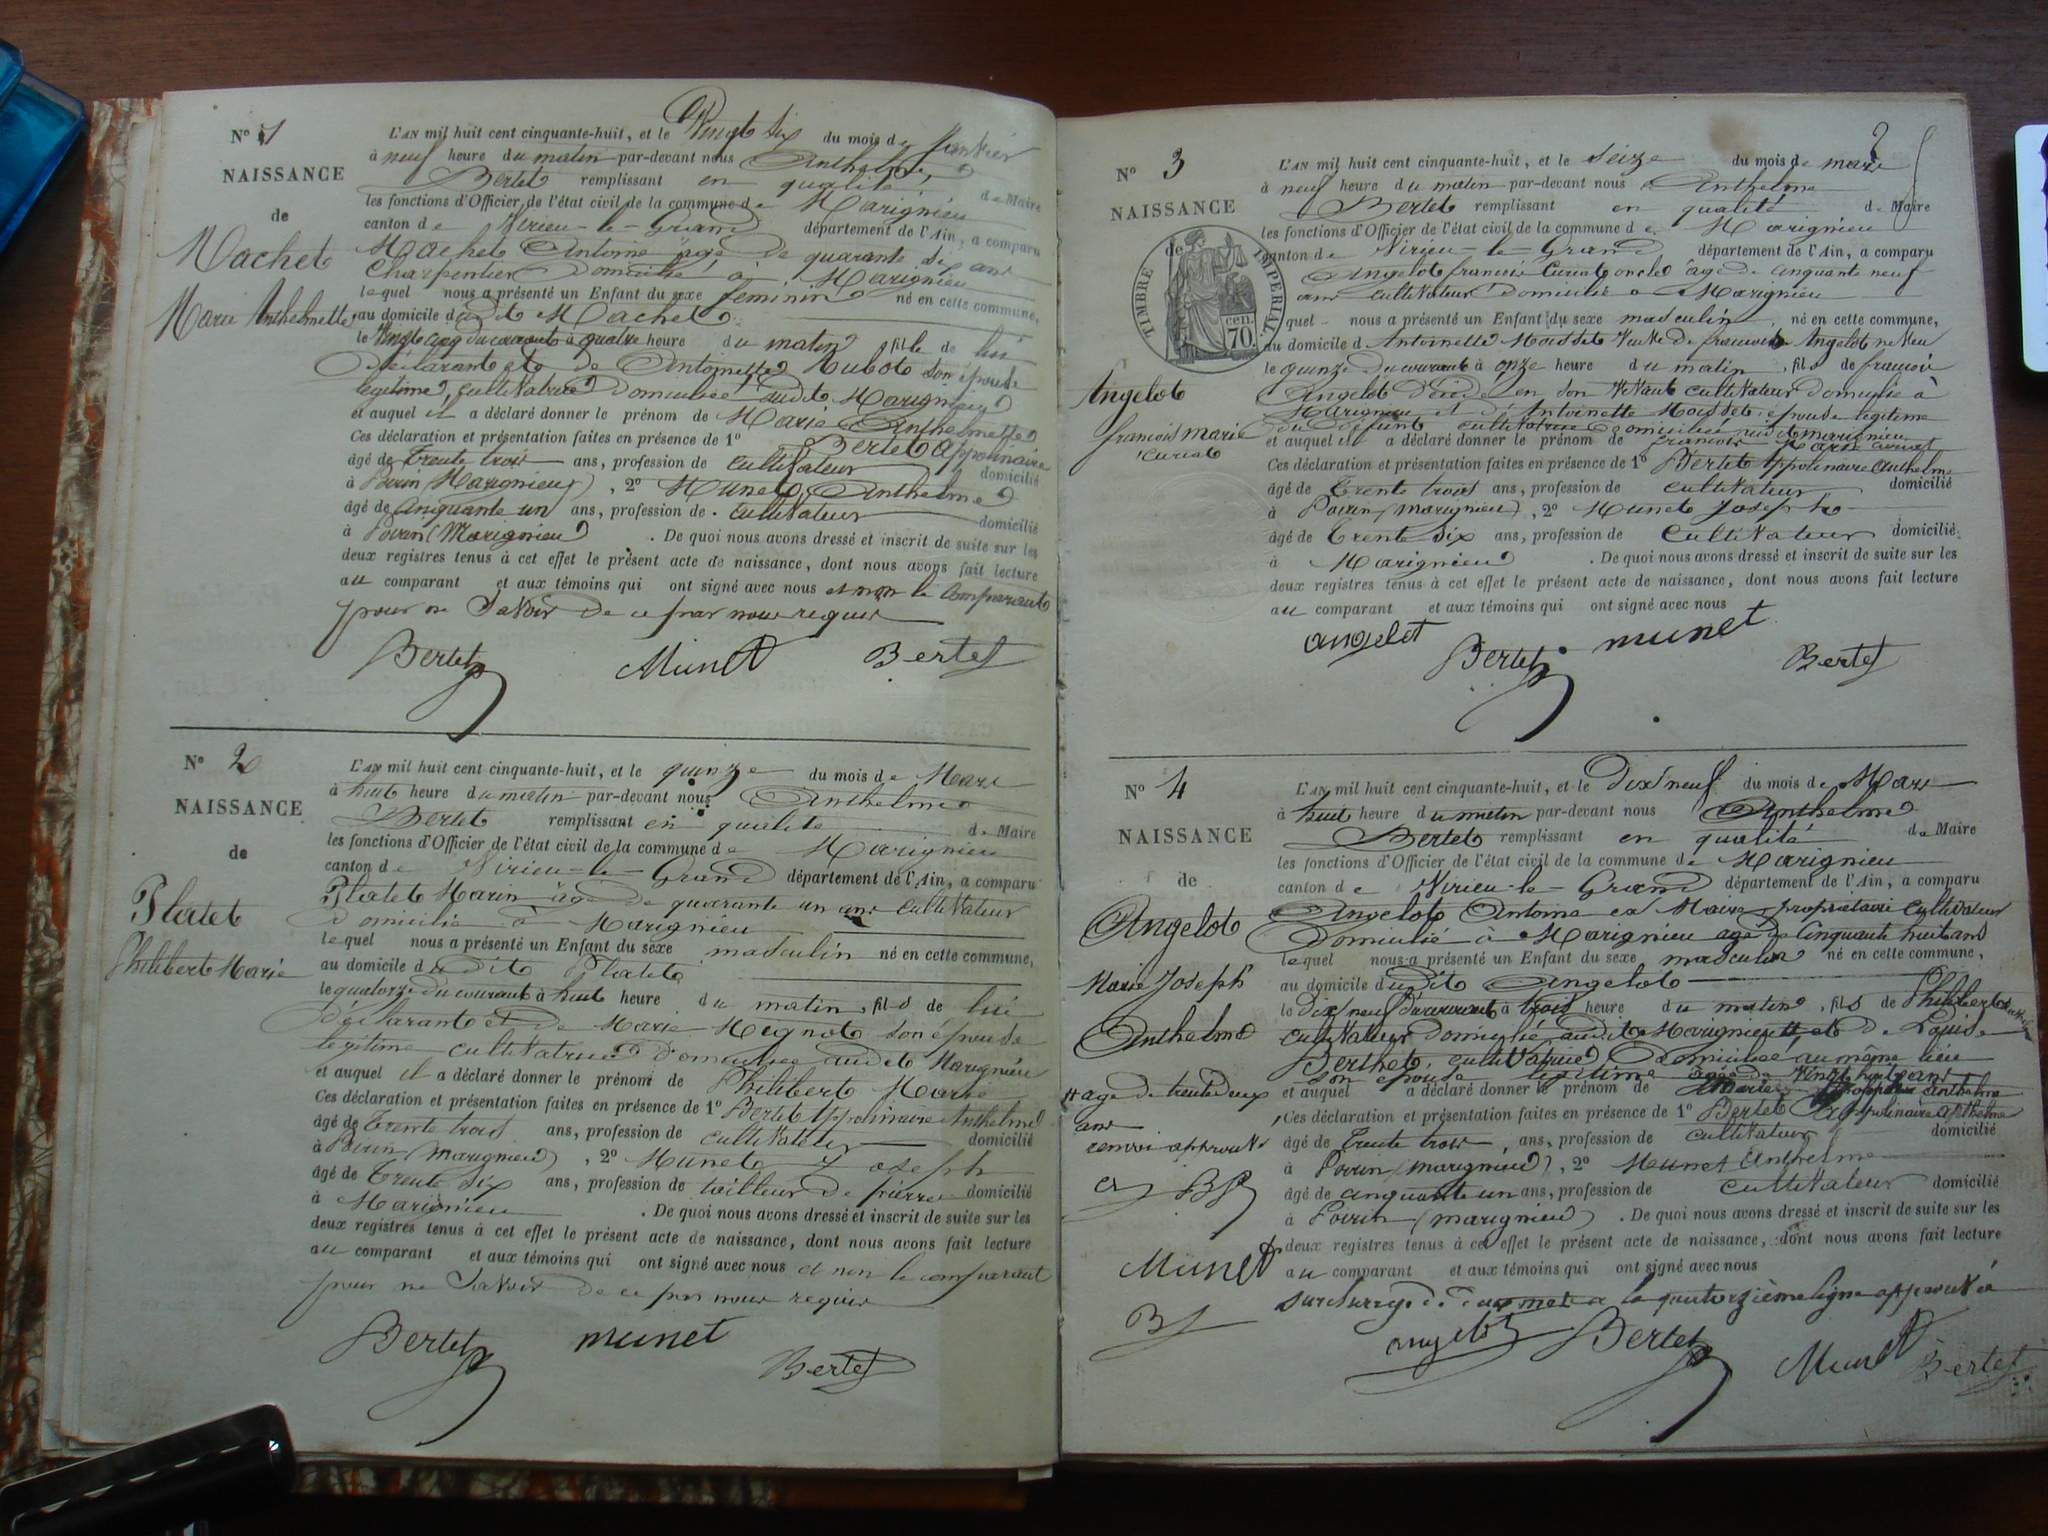 N° 1
NAISSANCE
de
Machet
Marie Anthelmette
L'AN mil huit cent cinquante-huit, et le Vingt six du mois de Janvier
à neuf heure du matin par-devant nous Anthelme
Bertet remplissant en qualité de Maire
les fonctions d'Officier de l'état civil de la commune de Marignieu
canton de Virieu-le-Grand département de l'Ain, a comparu
Machet Antoine âgé de quarante six ans
Charpentier domicilié à Marignieu
lequel nous a présenté un Enfant du sexe feminin né en cette commune,
au domicile dudit Machet
le Vingt cinq du courant à quatre heure du matin fille de lui
déclarant et de Antoinette Hubot son épouse
légitime, cultivatrice domiciliée audit Marignieu
et auquel il a déclaré donner le prénom de Marie Anthelmette
Ces déclaration et présentation faites en présence de 1° Bertet Appolinaire
âgé de Trente trois ans, profession de cultivateur domicilié
à Poirin (Marignieu), 2° Munet Anthelme
âgé de cinquante un ans, profession de cultivateur domicilié
à Poirin (Marignieu). De quoi nous avons dressé et inscrit de suite sur les
deux registres tenus à cet effet le présent acte de naissance, dont nous avons fait lecture
au comparant et aux témoins qui ont signé avec nous et non le comparant
pour ne savoir de ce par nous requis
Bertet Munet Bertet
N° 2
NAISSANCE
de
Platet
Philibert Marie
L'AN mil huit cent cinquante-huit, et le quinze du mois de Mars
à huit heure du matin par-devant nous Anthelme
Bertet remplissant en qualité de Maire
les fonctions d'Officier de l'état civil de la commune de Marignieu
canton de Virieu-le-Grand département de l'Ain, a comparu
Platet Marin âgé de quarante un ans cultivateur
domicilié à Marignieu
lequel nous a présenté un Enfant du sexe masculin né en cette commune,
au domicile dudit Platet
le quatorze du courant à huit heure du matin, fils de lui
déclarant et de Marie son épouse
légitime cultivatrice domiciliée audit Marignieu
et auquel il a déclaré donner le prénom de Philibert Marie
Ces déclaration et présentation faites en présence de 1° Bertet Appolinaire Anthelme
âgé de Trente trois ans, profession de cultivateur domicilié
à Poirin (Marignieu), 2° Munet Joseph
âgé de Trente six ans, profession de tailleur de pierre domicilié
à Marignieu. De quoi nous avons dressé et inscrit de suite sur les
deux registres tenus à cet effet le présent acte de naissance, dont nous avons fait lecture
au comparant et aux témoins qui ont signé avec nous et non le comparant
pour ne savoir de ce par nous requis
Bertet munet Bertet
N° 3
NAISSANCE
de
TIMBRE IMPERIAL
70 cen.
Angelot
francois marie
curiat
L'AN mil huit cent cinquante-huit, et le seize du mois de mars
à neuf heure du matin par-devant nous Anthelme
Bertet remplissant en qualité de Maire
les fonctions d'Officier de l'état civil de la commune de Marignieu
canton de Virieu-le-Grand département de l'Ain, a comparu
Angelot francois Curiat oncle âgé de cinquante neuf
ans cultivateur domicilié à Marignieu
quel nous a présenté un Enfant du sexe masculin, né en cette commune,
au domicile d Antoinette Moisset Veuve de francois Angelot neveu
le quinze du courant à onze heure du matin, fils de francois
Angelot décédé en son vivant cultivateur domicilié à
Marignieu et d'Antoinette Moisset épouse légitime
du défunt cultivatrice domiciliée audit marignieu
et auquel il a déclaré donner le prénom de francois Marie curiat
Ces déclaration et présentation faites en présence de 1° Bertet Appolinaire Anthelme
âgé de Trente trois ans, profession de cultivateur domicilié
à Poirin (marignieu), 2° Munet Joseph
âgé de Trente six ans, profession de Cultivateur domicilié
à Marignieu. De quoi nous avons dressé et inscrit de suite sur les
deux registres tenus à cet effet le présent acte de naissance, dont nous avons fait lecture
au comparant et aux témoins qui ont signé avec nous
angelot Bertet munet Bertet
N° 4
NAISSANCE
de
Angelot
Marie Joseph
Anthelme
# age de trente deux
ans
renvoi approuvé
Munet
L'AN mil huit cent cinquante-huit, et le Dix neuf du mois de Mars
à huit heure du matin par-devant nous Anthelme
Bertet remplissant en qualité de Maire
les fonctions d'Officier de l'état civil de la commune de Marignieu
canton de Virieu-le-Grand département de l'Ain, a comparu
Angelot Antoine ex Maire propriétaire cultivateur
domicilié à Marignieu age de cinquante huit ans
lequel nous a présenté un Enfant du sexe masculin né en cette commune,
au domicile dudit Angelot
le dix neuf du courant à trois heure du matin, fils de Philibert
cultivateur domicilié audit Marignieu # et de Louise
Berthet, cultivatrice domiciliée au même lieu
son épouse légitime agée de vingt huit ans
et auquel a déclaré donner le prénom de Marie Joseph Anthelme
Ces déclaration et présentation faites en présence de 1° Bertet Appolinaire Anthelme
âgé de Trente trois, ans, profession de cultivateur domicilié
à Poirin (marignieu), 2° Munet Anthelme
âgé de cinquante un ans, profession de cultivateur domicilié
à Poirin (marignieu). De quoi nous avons dressé et inscrit de suite sur les
deux registres tenus à cet effet le présent acte de naissance, dont nous avons fait lecture
au comparant et aux témoins qui ont signé avec nous
mot a la quatorzième ligne approuvée
angelot Bertet Munet Bertet